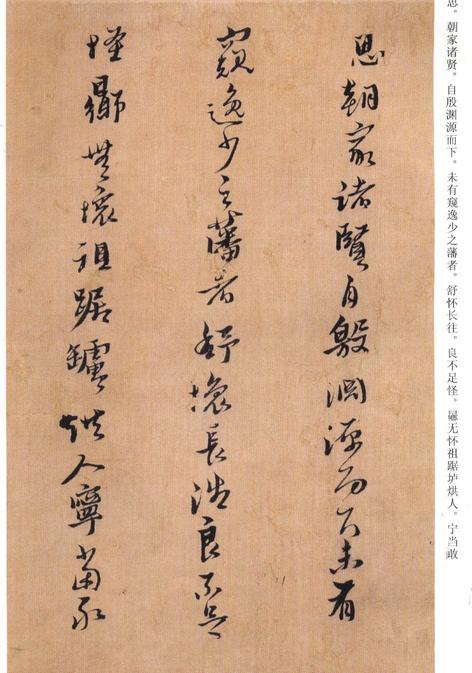 思。朝家诸贤。自殷渊源而下。未有窥逸少之藩者。舒怀长往。良不足怪。无怀祖踞垆烘人。宁当敢
思朝家諸賢自殷淵源而下未有
窺逸少之藩者舒懷長往良不足
怪無懷祖踞鑪烘人寧當敢